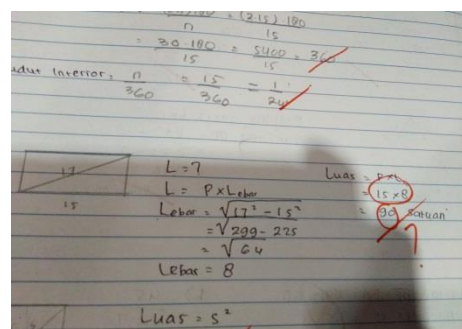 = (2.15) 180
n 15
= 30.180 = 5400 = 360
15 15
Interior = n = 15 = 1
360 360 24
17
15
L = ?
L = P x Lebar
Lebar = √17² - 15²
= √299 - 225
= √64
Lebar = 8
Luas = P x L
= 15 x 8
= 90 satuan
?
Luas = s²